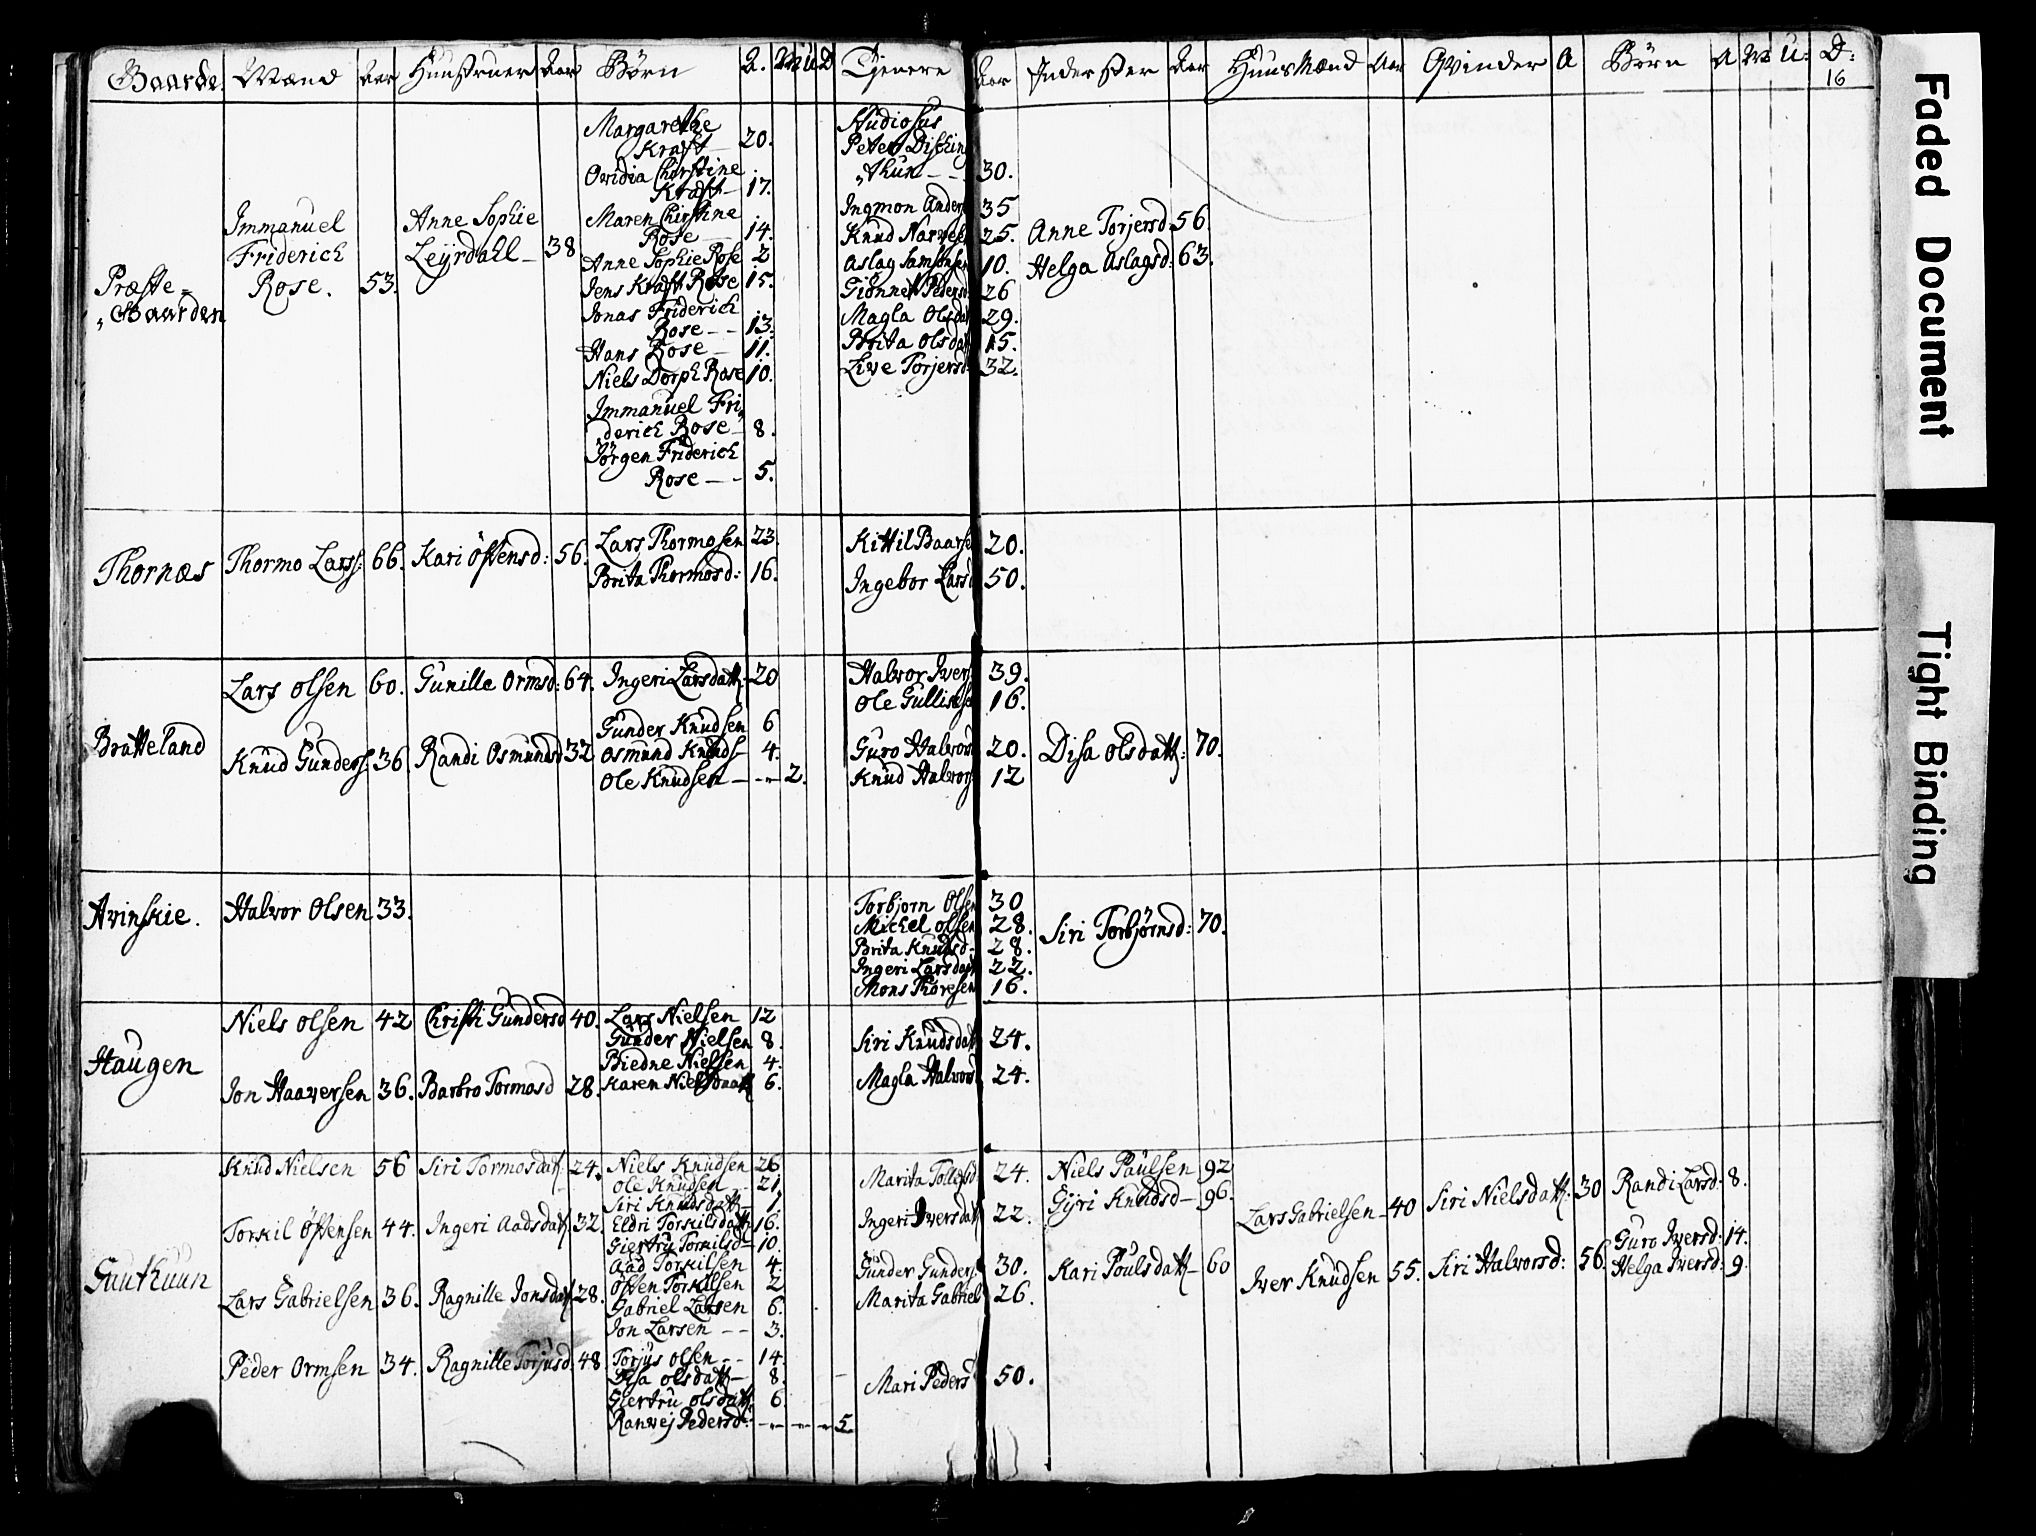 Gaarde Mænd Aar Hunstruer Aar Börn A. M U D Tjenere Aar Inderster Aar Huus Mænd Aar Qvinder A Börn A M U: D:
16
Præste-
Gaarden
Immanuel
Friderich
Rose. 53.
Anne Sophie
Leyrdahl - 38
Margarethe
Kraft - 20.
Ovidia Chirstine
Kraft - 17.
Maren Chirstine
Rose - 14.
Anne Sophie Rose 2
Jens Kraft Rose 15.
Jonas Friderich
Rose - - 13.
Hans Rose - 11.
Niels Dorph Rose 10.
Immanuel Fri
derich Rose - 8.
Jörgen Friderich
Rose - - 5.
Studiosus
Peter
thun - - 30.
Ingmon Anders 35
Knud 25.
Aslag Samsonsen 10.
Gionnet Peders 26
Magla Olsdat 29.
Brita Olsdat 15.
Live Torjersd 32.
Anne Torjersd 56.
Helga Aslagsd: 63.
Thornæs
Thormo Larss: 66.
Kari Östensd: 56.
Lars Thormosen 23.
Brita Thormosd: 16.
Kittil Baarse 20.
Ingebor Larsd 50.
Bratteland
Lars Olsen 60.
Gunille Ormsd: 64.
Ingeri Larsdatt: 20
Halvor Ivers 39.
Ole Gullikse 16.
Knud Gunders: 36.
Randi Osmunsd 32
Gunder Knudsen 6
Osmund Knuds 4.
Ole Knudsen - - - 2.
Guro Halvors 20.
Knud Halvors 12
Disa Olsdatt: 70.
Avinskie.
Halvor Olsen 33.
Torbjorn Olsen 30
Michel Olsen 28.
Brita Knudsd - 28.
Ingeri Larsdatt 22.
Mons Thoresen 16.
Siri Torbjörnsd: 70.
Haugen
Niels Olsen 42
Christi Gundersd 40.
Lars Nielsen 12
Gunder Nielsen 8.
Biedne Nielsen 4.
Karen Nielsdaatt 6.
Jon Haaversen 36.
Barbro Tormosd 28.
Siri Knudsdatt 24.
Magla Halvors 24.
Guuthuun
Knud Nielsen 56
Siri Tormosdatt: 24.
Niels Knudsen 26
Ole Knudsen - 21.
Siri Knudsdatt - 1.
Torkil Östensen 44.
Ingeri Aadsdatt 32.
Eldri Torkilsdatt 16.
Giertru Torkilsd - 10.
Aad Torkilsen 4.
Östen Torkilsen 2
Lars Gabrielsen 36.
Ragnille Jonsdatt 28.
Gabriel Larsen 6.
Jon Larsen - - 3.
Peder Ormsen 34.
Ragnille Torjusd 48.
Torjus Olsen - - 14.
Disa Olsdatt - 8.
Giertru Olsdatt 6.
Ranvej Pedersd: - - - - 5
Marita Tollefsd 24.
Ingeri Iversdatt 22.
Gunder Gunders 30.
Marita Gabriel 26.
Mari Peders 50.
Niels Paulsen 92
Gyri Knudsd - 96.
Kari Poulsdatt - 60
Lars Gabrielsen - 40
Siri Nielsdatt: 30
Randi Larsd: 8.
Iver Knudsen 55.
Siri Halvorsd: 56.
Guro Iversd: 14.
Helga Iversd: 9.
Faded Document
Tight Binding